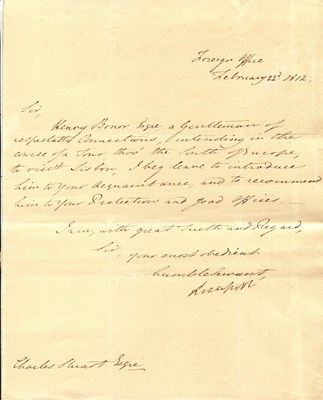 Foreign Office
February 22d 1812.
Sir,
Henry Bonor Esqre a Gentleman of
respectable Connections, intending in the
course of a Tour thro' the South of Europe,
to visit Lisbon, I beg leave to introduce
him to Your Acquaintance, and to recommend
him to Your Protection and good Offices. —
I am, with great Truth and Regard,
Sir, your most obedient
humble Servant,
Liverpool
Charles Stuart Esqre